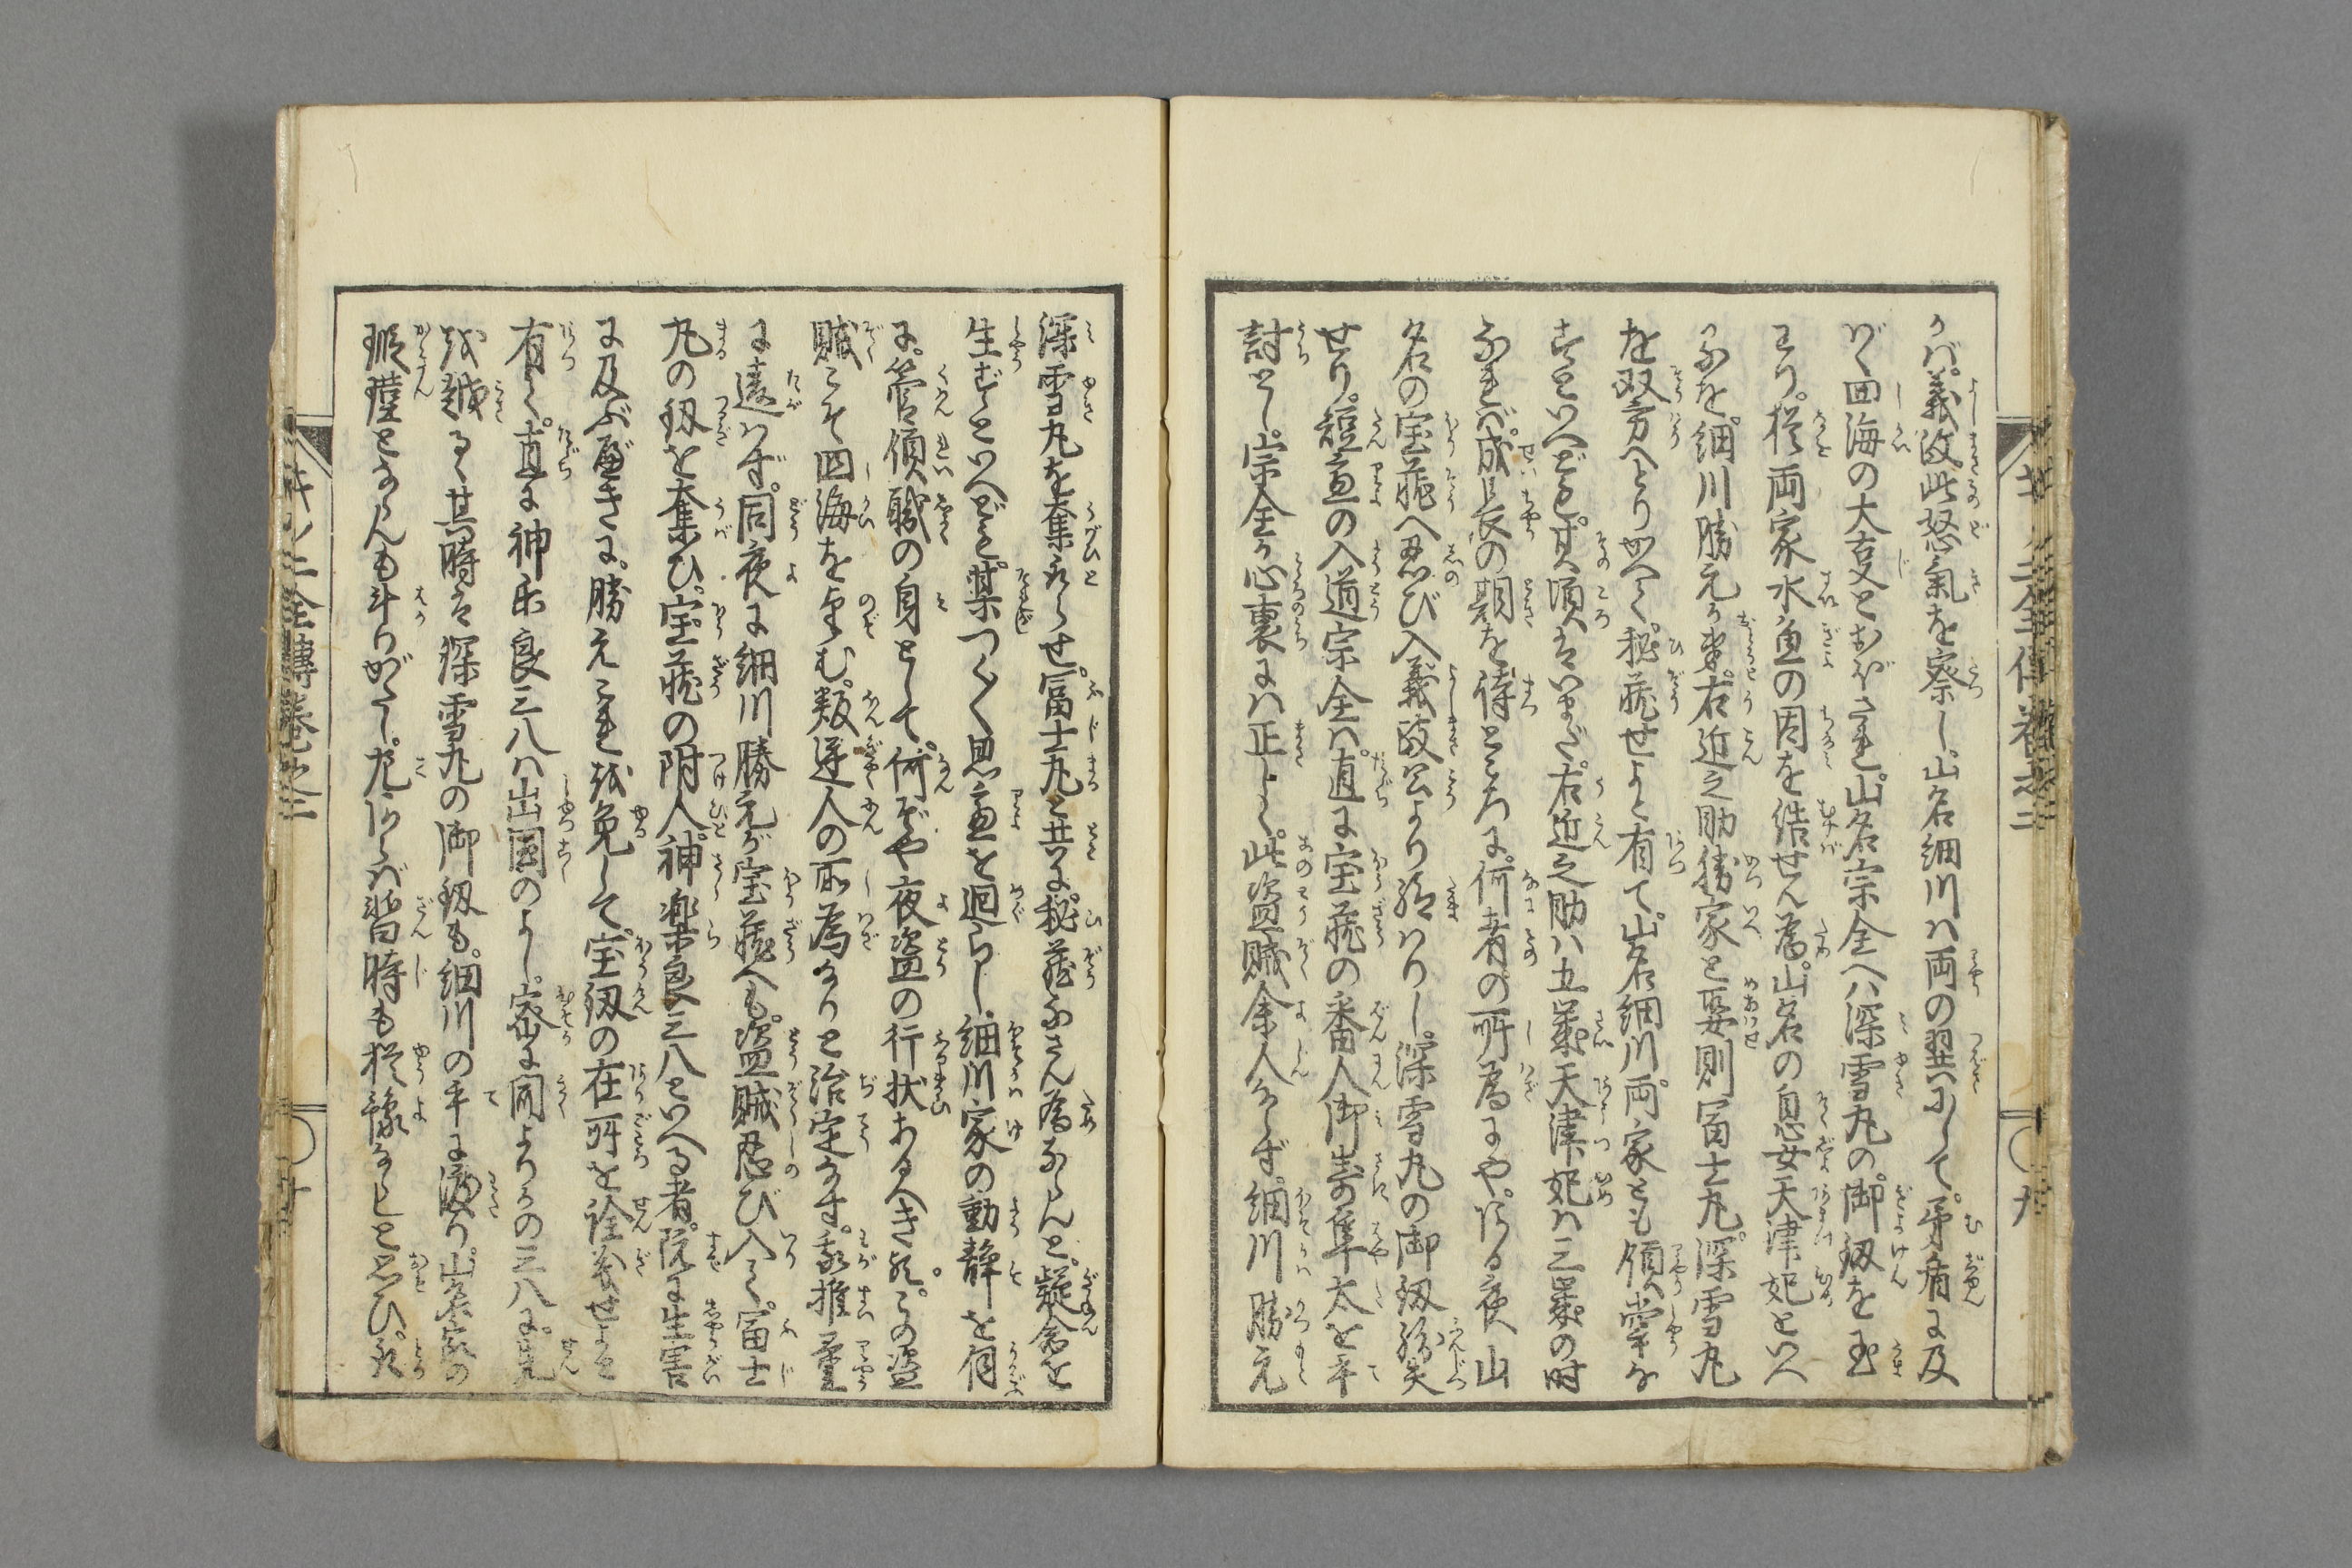 らバ。義政此怒氣を察し。山名細川ハ両の翼にして。矛盾に及
バヾ四海の大変とおぼされ。山名宗全へハ深雪丸の。御釼を玉
わり。猶両家水魚の因を結せん為。山名の息女天津妃といへ
るを。細川勝元が妻。右近之助勝家と娶則冨士丸。深雪丸
を双方へとりかへて。秘蔵せよと有て。山名細川両家とも領掌な
すといへども。其頃はいまだ。右近之助ハ五歳天津妃ハ三歳の時
なれバ。成長の期を待ところに。何者の所為にや。ある夜山
名の宝蔵へ忍び入義政公より給ハりし。深雪丸の御釼紛失
せり。短慮の入道宗全ハ。直に宝蔵の番人御嵜隼太を手
討とし。宗全が心裏にハ正しく。此盗賊余人ならず。細川勝元
深雪丸を奪取らせ。冨士丸と共に。秘蔵なさん為ならんと。疑念を
生ずといへども。某つく〲思慮を廻らし。細川家の動静を伺
に。管領職の身として。何ぞや夜盗の行状あるべき。この盗
賊こそ四海をのぞむ。叛逆人の所為なりと治定なす。我推量
に違ハず。同夜に細川勝元が宝蔵へも。盗賊忍び入て。冨士
丸の釼を奪ひ。宝蔵の附人。神楽良三八といへる者。既に生害
に及ぶべきに。勝元これを免して。宝釼の在所を詮義せよと
有て。直に神楽良三八ハ出国のよし。密に聞よりかの三八に。先
を越るゝ其時は深雪丸の御釼も。細川の手に渡り。山名家の
瑕瑾とならんも斗りがたし。左あらバ暫時も猶豫なしと思ひ。取